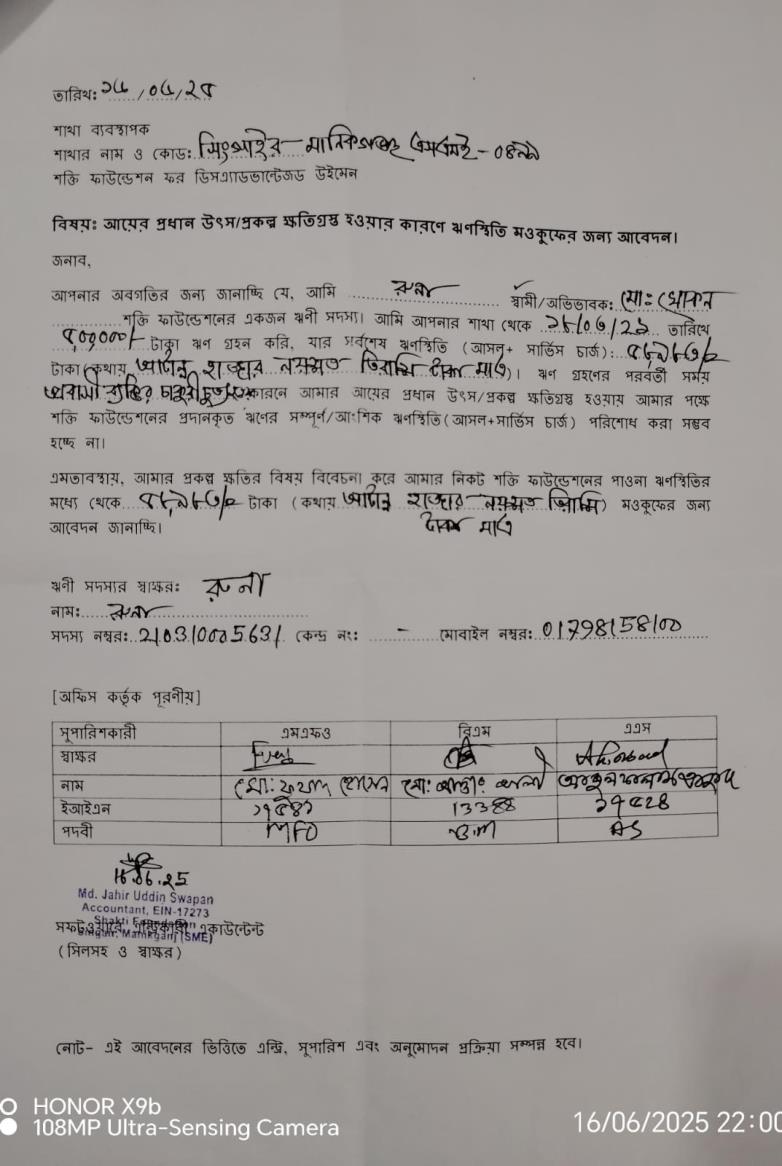 তারিখ: ১৬ / ০৬ / ২৫
শাখা ব্যবস্থাপক
শাখার নাম ও কোড: সিংগাইর - মানিকগঞ্জ এসএমই - ০৪
শক্তি ফাউন্ডেশন ফর ডিসএ্যাডভান্টেজড উইমেন
বিষয়: আয়ের প্রধান উৎস/প্রকল্প ক্ষতিগ্রস্ত হওয়ার কারণে ঋণস্থিতি মওকুফের জন্য আবেদন।
জনাব,
আপনার অবগতির জন্য জানাচ্ছি যে, আমি রুনা স্বামী/অভিভাবক: মো: খোকন
শক্তি ফাউন্ডেশনের একজন ঋনী সদস্য। আমি আপনার শাখা থেকে তারিখে
টাকা ঋণ গ্রহন করি, যার সর্বশেষ ঋণস্থিতি (আসল+ সার্ভিস চার্জ):
টাকা কথায় হাজার নয়শত তিরাশি টাকা মাত্র)। ঋণ গ্রহণের পরবর্তী সময়
প্রবাসী ব্যক্তির চাকুরীচ্যুত কারনে আমার আয়ের প্রধান উৎস/প্রকল্প ক্ষতিগ্রস্ত হওয়ায় আমার পক্ষে
শক্তি ফাউন্ডেশনের প্রদানকৃত ঋণের সম্পূর্ন/আংশিক ঋণস্থিতি (আসল+সার্ভিস চার্জ) পরিশোধ করা সম্ভব
হচ্ছে না।
এমতাবস্থায়, আমার প্রকল্প ক্ষতির বিষয় বিবেচনা করে আমার নিকট শক্তি ফাউন্ডেশনের পাওনা ঋণস্থিতির
মধ্যে থেকে টাকা (কথায় হাজার নয়শত তিরাশি) মওকুফের জন্য
টাকা মাত্র
আবেদন জানাচ্ছি।
ঋনী সদস্যর স্বাক্ষর: রুনা
নাম: রুনা
সদস্য নম্বর: কেন্দ্র নং: - মোবাইল নম্বর: 01798158100
[অফিস কর্তৃক পূরনীয়]
সুপারিশকারী এমএফও বিএম এএস
স্বাক্ষর
নাম মো: মো:
ইআইএন 13388
পদবী MFO BM AS
16.06.25
Md. Jahir Uddin Swapan
Accountant, EIN-17273
Shakti Foundation
Singair, Manikganj (SME)
সফটওয়্যার একাউন্টেন্ট
(সিলসহ ও স্বাক্ষর)
নোট- এই আবেদনের ভিত্তিতে এন্ট্রি, সুপারিশ এবং অনুমোদন প্রক্রিয়া সম্পন্ন হবে।
HONOR X9b
108MP Ultra-Sensing Camera
16/06/2025 22:00